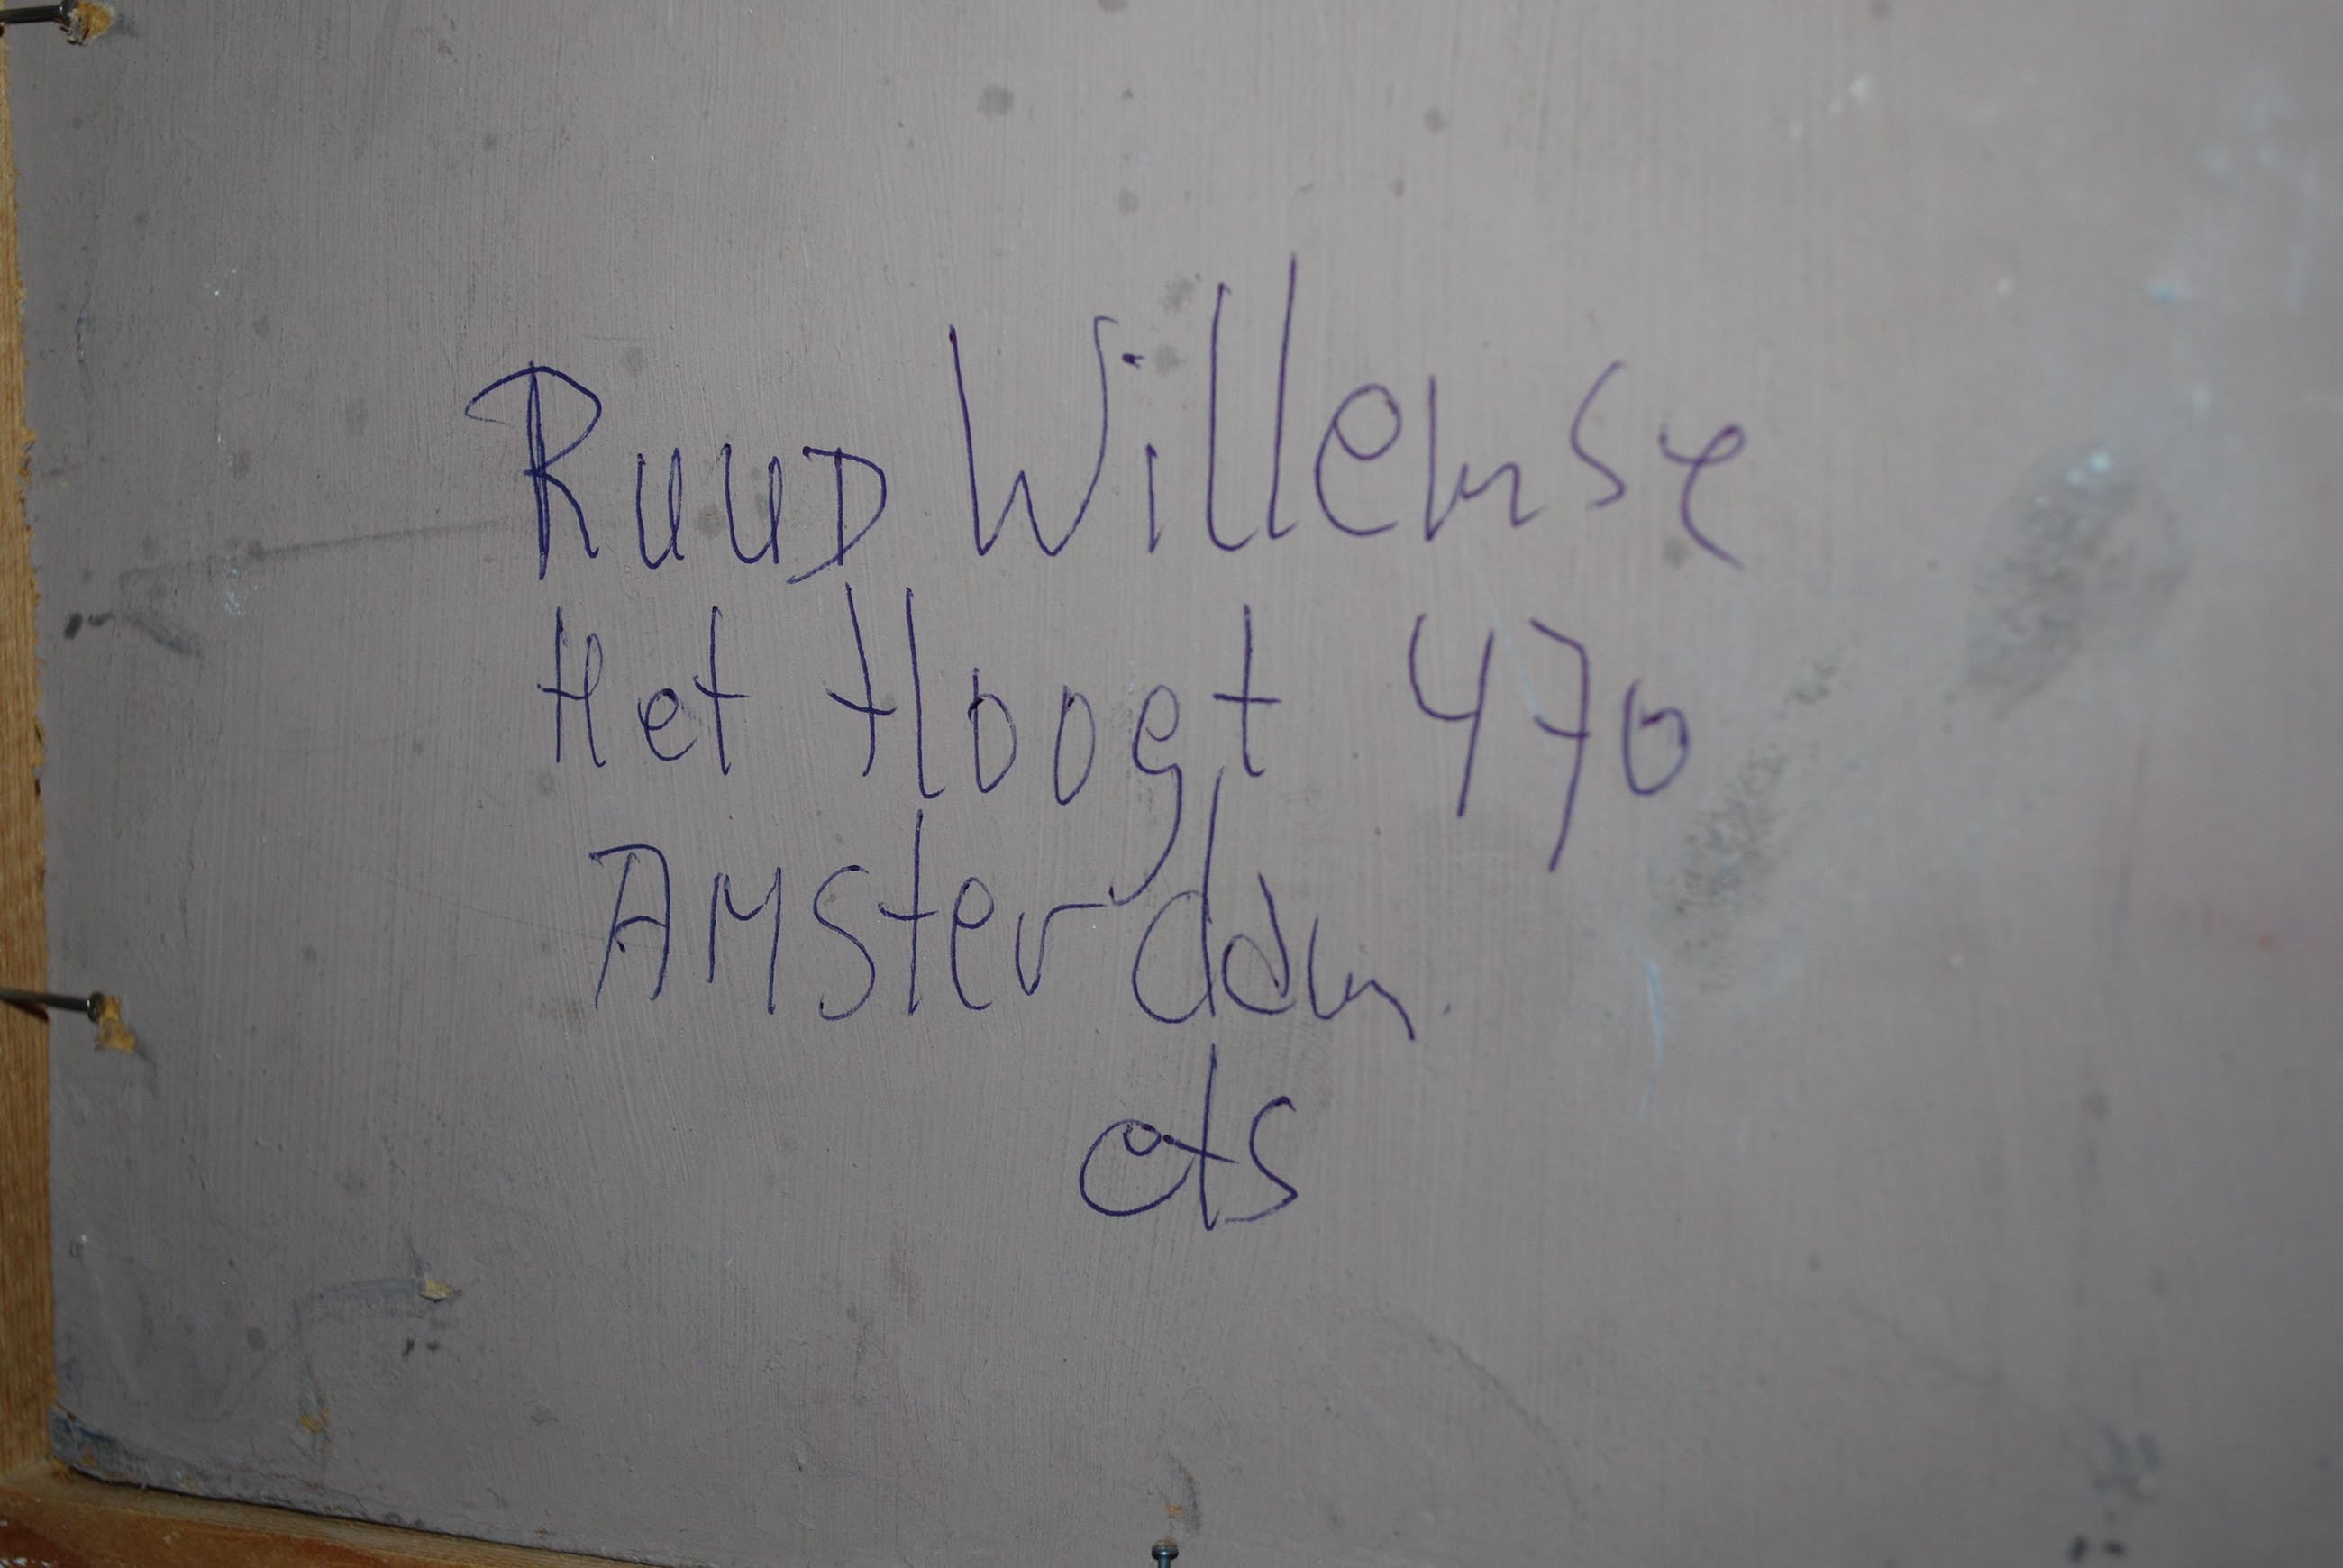 Ruud Willemse
Het Hoogt 470
Amsterdam.